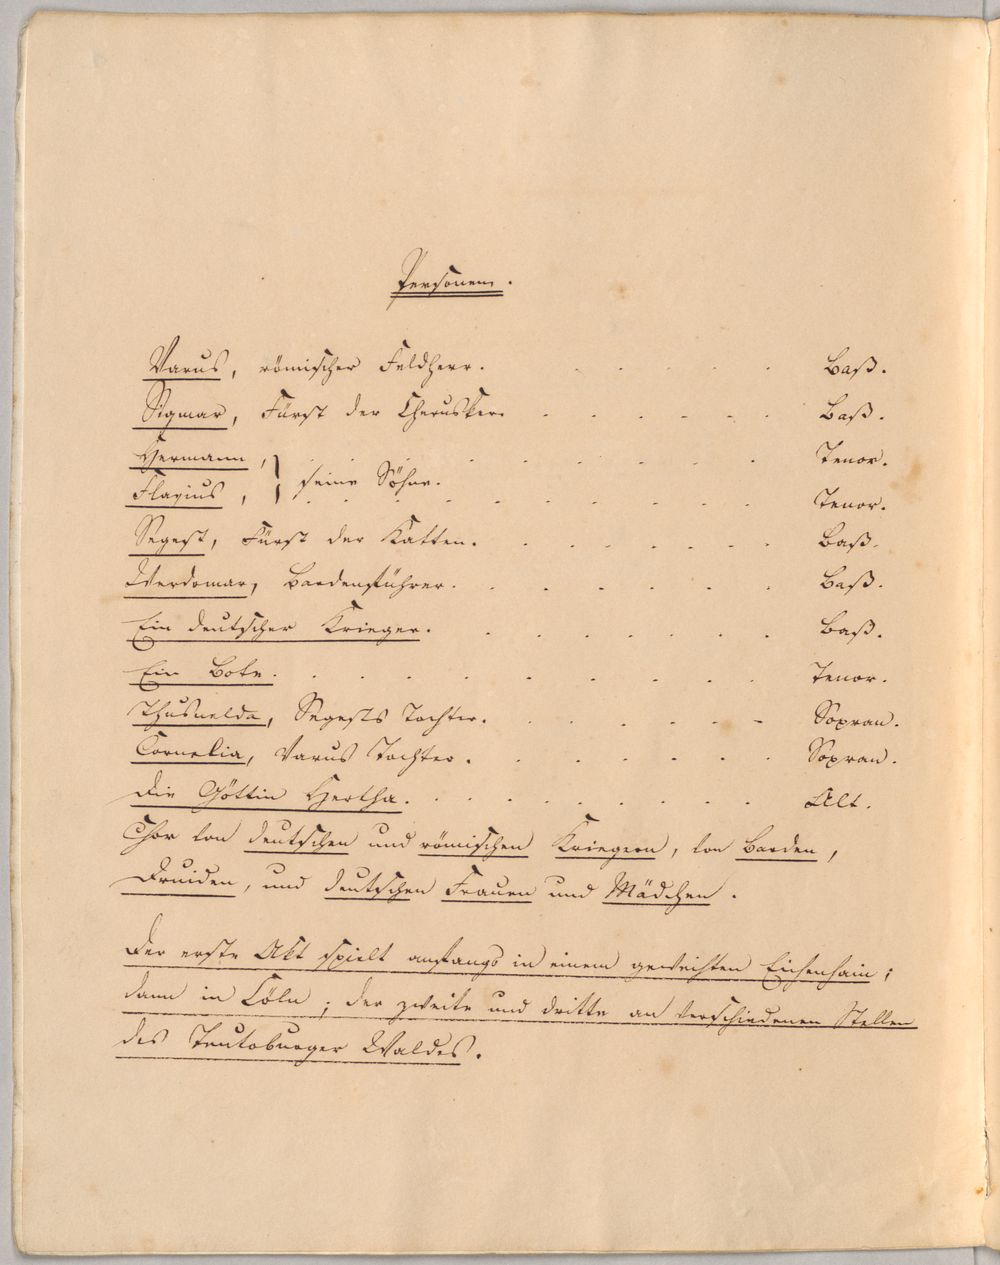 Personen.
Varus, römischer Feldherr. . . . . . Baß.
Sigmar, Fürst der Cherusker. . . . . . . Baß.
Hermann, . . . . . . . . . Tenor.
} seine Söhne.
Flavius, . . . . . . . . . Tenor.
Segest, Fürst der Katten. . . . . . . . Baß.
Werdomar, Bardenführer. . . . . . . Baß.
Ein deutscher Krieger. . . . . . . Baß.
Ein Bote. . . . . . . . . . Tenor.
Thusnelda, Segests Tochter. . . . . . - Sopran.
Cornelia, Varus Tochter. . . . . . . Sopran.
Die Göttin Hertha. . . . . . . . . Alt.
Chor von deutschen und römischen Kriegern, von Barden,
Druiden, und deutschen Frauen und Mädchen.
Der erste Akt spielt anfangs in einem geweihten Eichenhain;
dann in Cöln; der zweite und dritte an verschiedenen Stellen
des Teutoburger Waldes.